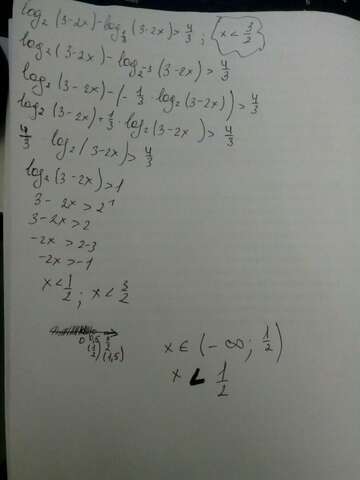 log₂ (3-2x) - log_{1/8} (3-2x) > 4/3 ; x < 3/2
log₂ (3-2x) - log_{2⁻³} (3-2x) > 4/3
log₂ (3-2x) - (-1/3 · log₂ (3-2x)) > 4/3
log₂ (3-2x) + 1/3 · log₂ (3-2x) > 4/3
4/3 · log₂ (3-2x) > 4/3
log₂ (3-2x) > 1
3 - 2x > 2¹
3 - 2x > 2
-2x > 2-3
-2x > -1
x < 1/2 ; x < 3/2
0 0,5 (1/2) 3/2 (1,5)
x ∈ (-∞; 1/2)
x < 1/2